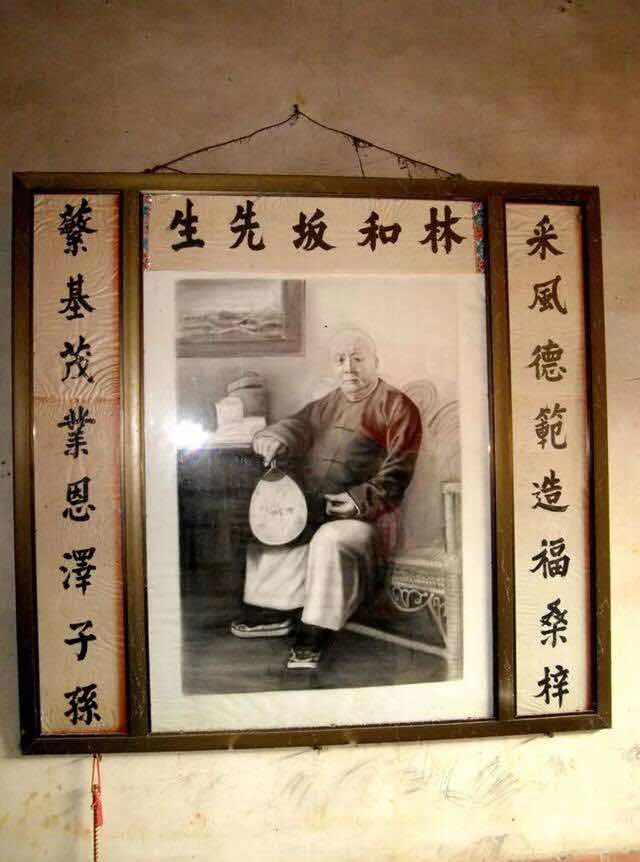 林和坂先生
采風德範造福桑梓
蘩基茂業恩澤子孫